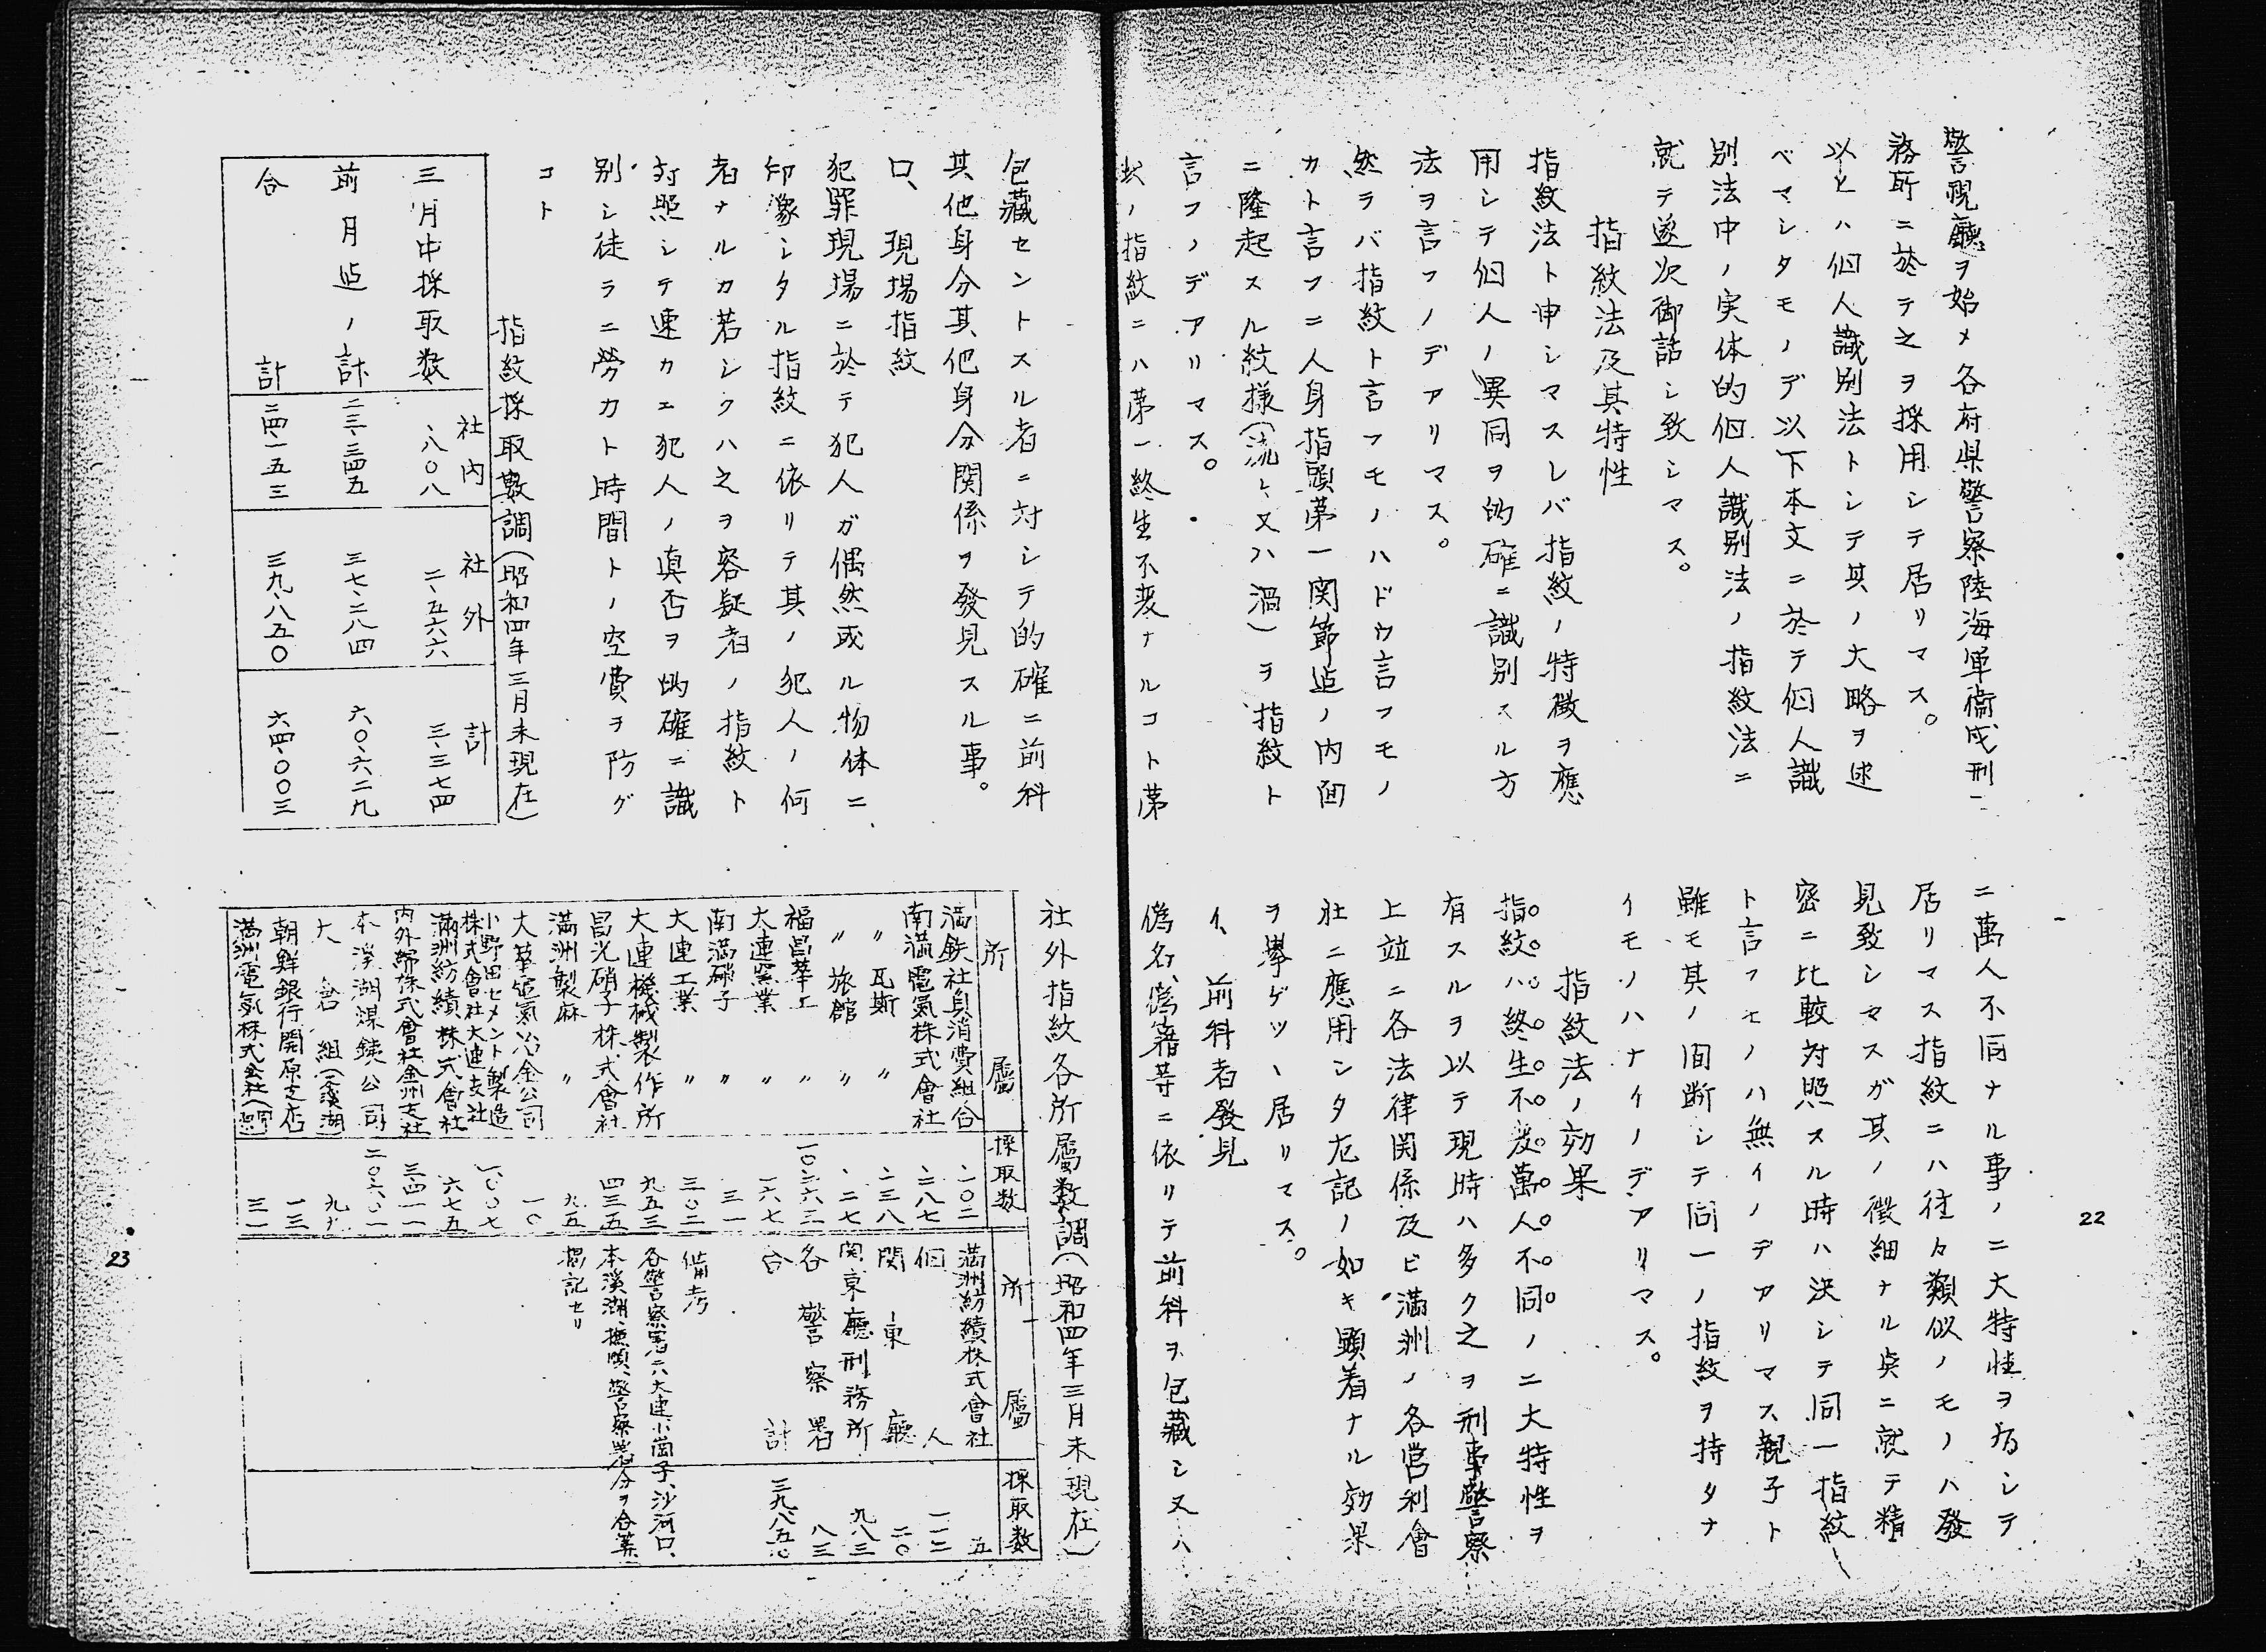 警視廳ヲ始メ各府県警察陸海軍衞戍刑
務所ニ於テ之ヲ採用シテ居リマス。
以上ハ個人識別法トシテ其ノ大略ヲ述
ベマシタモノデ以下本文ニ於テ個人識
別法中ノ実体的個人識別法ノ指紋法ニ
就テ遂次御話シ致シマス。
指紋法及其特性
指紋法ト申シマスレバ指紋ノ特徴ヲ應
用シテ個人ノ異同ヲ的確ニ識別スル方
法ヲ言フノデアリマス。
然ラバ指紋ト言フモノハドウ言フモノ
カト言フニ人身指頭第一関節迠ノ内面
ニ隆起スル紋様(流レ又ハ渦)ヲ指紋ト
言フノデアリマス。
此ノ指紋ニハ第一終生不変ナルコト第
二萬人不同ナル事ノ二大特性ヲ為シテ
居リマス指紋ニハ往々類似ノモノハ發
見致シマスガ其ノ徴細ナル点ニ就テ精
密ニ比較対照スル時ハ決シテ同一指紋
ト言フモノハ無イノデアリマス親子ト
雖モ其ノ間断シテ同一ノ指紋ヲ持タナ
イモノハナイノデアリマス。
指紋法ノ効果
指紋ハ終生不変萬人不同ノ二大特性ヲ
有スルヲ以テ現時ハ多ク之ヲ刑事警察
上竝ニ各法律関係及ビ満洲ノ各営利會
社ニ應用シタ左記ノ如キ顕着ナル効果
ヲ擧ゲツヽ居リマス。
イ、前科者發見
偽名偽籍等ニ依リテ前科ヲ包藏シ又ハ
22
包藏セントスル者ニ対シテ的確ニ前科
其他身分其他身分関係ヲ發見スル事。
ロ、現場指紋
犯罪現場ニ於テ犯人ガ偶然或ル物体ニ
印象シタル指紋ニ依リテ其ノ犯人ノ何
者ナルカ若シクハ之ヲ容疑者ノ指紋ト
対照シテ速カニ犯人ノ真否ヲ的確ニ識
別シ徒ラニ勞力ト時間トノ空費ヲ防グ
コト
指紋採取數調(昭和四年三月末現在)
社内 社外 計
三月中採取数 、八〇八 二、五六六 三、三七四
前月迠ノ計 二三、三四五 三七、二八四 六〇、六二九
合計 二四、一五三 三九、八五〇 六四、〇〇三
社外指紋各所屬数調(昭和四年三月末現在)
所屬 採取数 所屬 採取数
満鉄社員消費組合 、一〇二
南満電氣株式會社 、二八七
〃 瓦斯 〃 、二三八
〃 旅館 〃 、二七
福昌華工 〃 一〇、三六三
大連窯業 〃 一六七
南満硝子 〃 三一
大連工業 〃 三〇二
大連機械製作所 九五三
昌光硝子株式會社 四三五
満洲製麻 〃 九五
大華電氣冶金公司 一〇
小野田セメント製造株式會社大連支社 一、〇〇七
満洲紡績株式會社 六七五
内外綿株式會社金州支社 三、四一一
本渓湖煤鉄公司 二〇、六〇一
大倉組(本渓湖)
朝鮮銀行開原支店 一三
満洲電気株式会社 三一
満洲紡績株式會社 五
個人 一一二
関東廳 二〇
関東廳刑務所 九八三
各警察署 八三
合計 三九、八五〇
備考
各警察署ニハ大連、小崗子、沙河口、
本渓湖、撫順、警察署分ヲ合算
掲記セリ
23